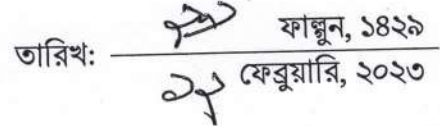 তারিখ:
ফাল্গুন, ১৪২৯
ফেব্রুয়ারি, ২০২৩